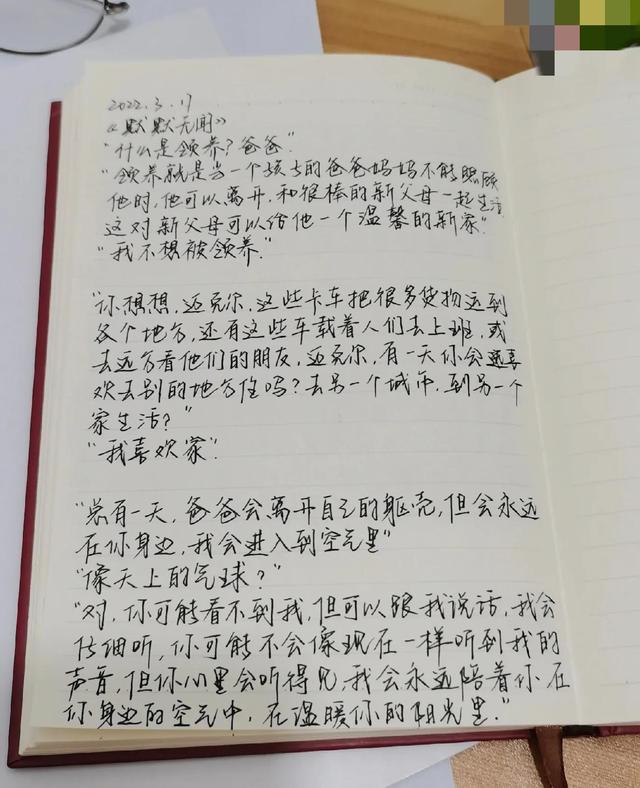 2022.3.17
《默默无闻》
"什么是领养?爸爸"
"领养就是当一个孩子的爸爸妈妈不能照顾
他时,他可以离开,和很棒的新父母一起生活
这对新父母可以给他一个温馨的新家"
"我不想被领养"
"你想想,迈克尔,这些卡车把很多货物运到
各个地方,还有这些车载着人们去上班,或
去远方看他们的朋友,迈克尔,有一天你会喜
欢去别的地方住吗?去另一个城市,到另一个
家生活?"
"我喜欢家"
"总有一天,爸爸会离开自己的躯壳,但会永远
在你身边,我会进入到空气里"
"像天上的气球?"
"对,你可能看不到我,但可以跟我说话,我会
仔细听,你可能不会像现在一样听到我的
声音,但你心里会听得见,我会永远陪着你,在
你身边的空气中,在温暖你的阳光里."